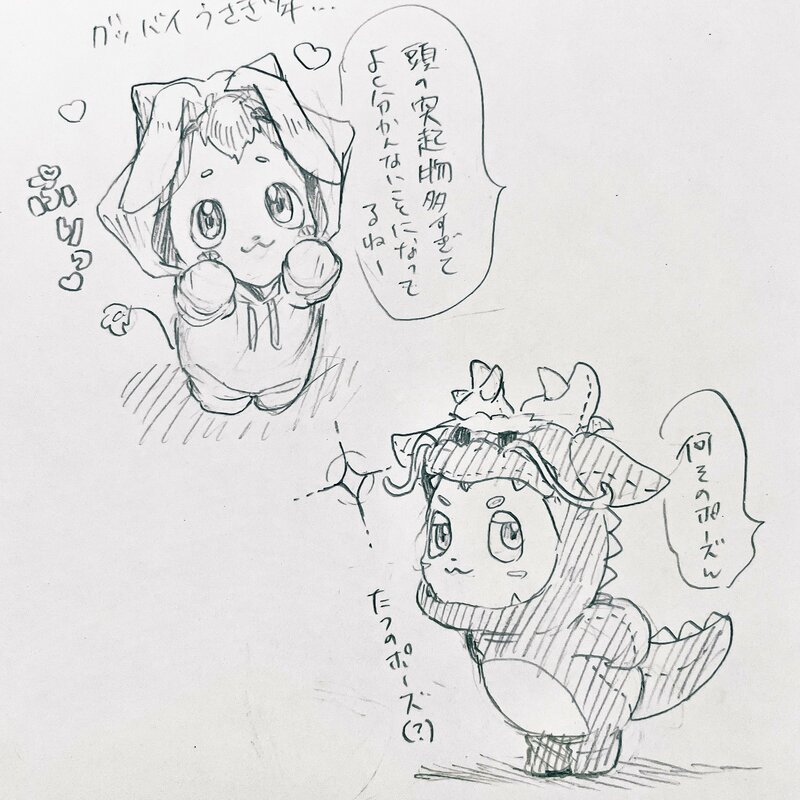 グッバイうさぎ年…
頭の突起物多すぎて
よく分かんないことになって
るねー
ぷりっ
何そのポーズw
たつのポーズ(?)